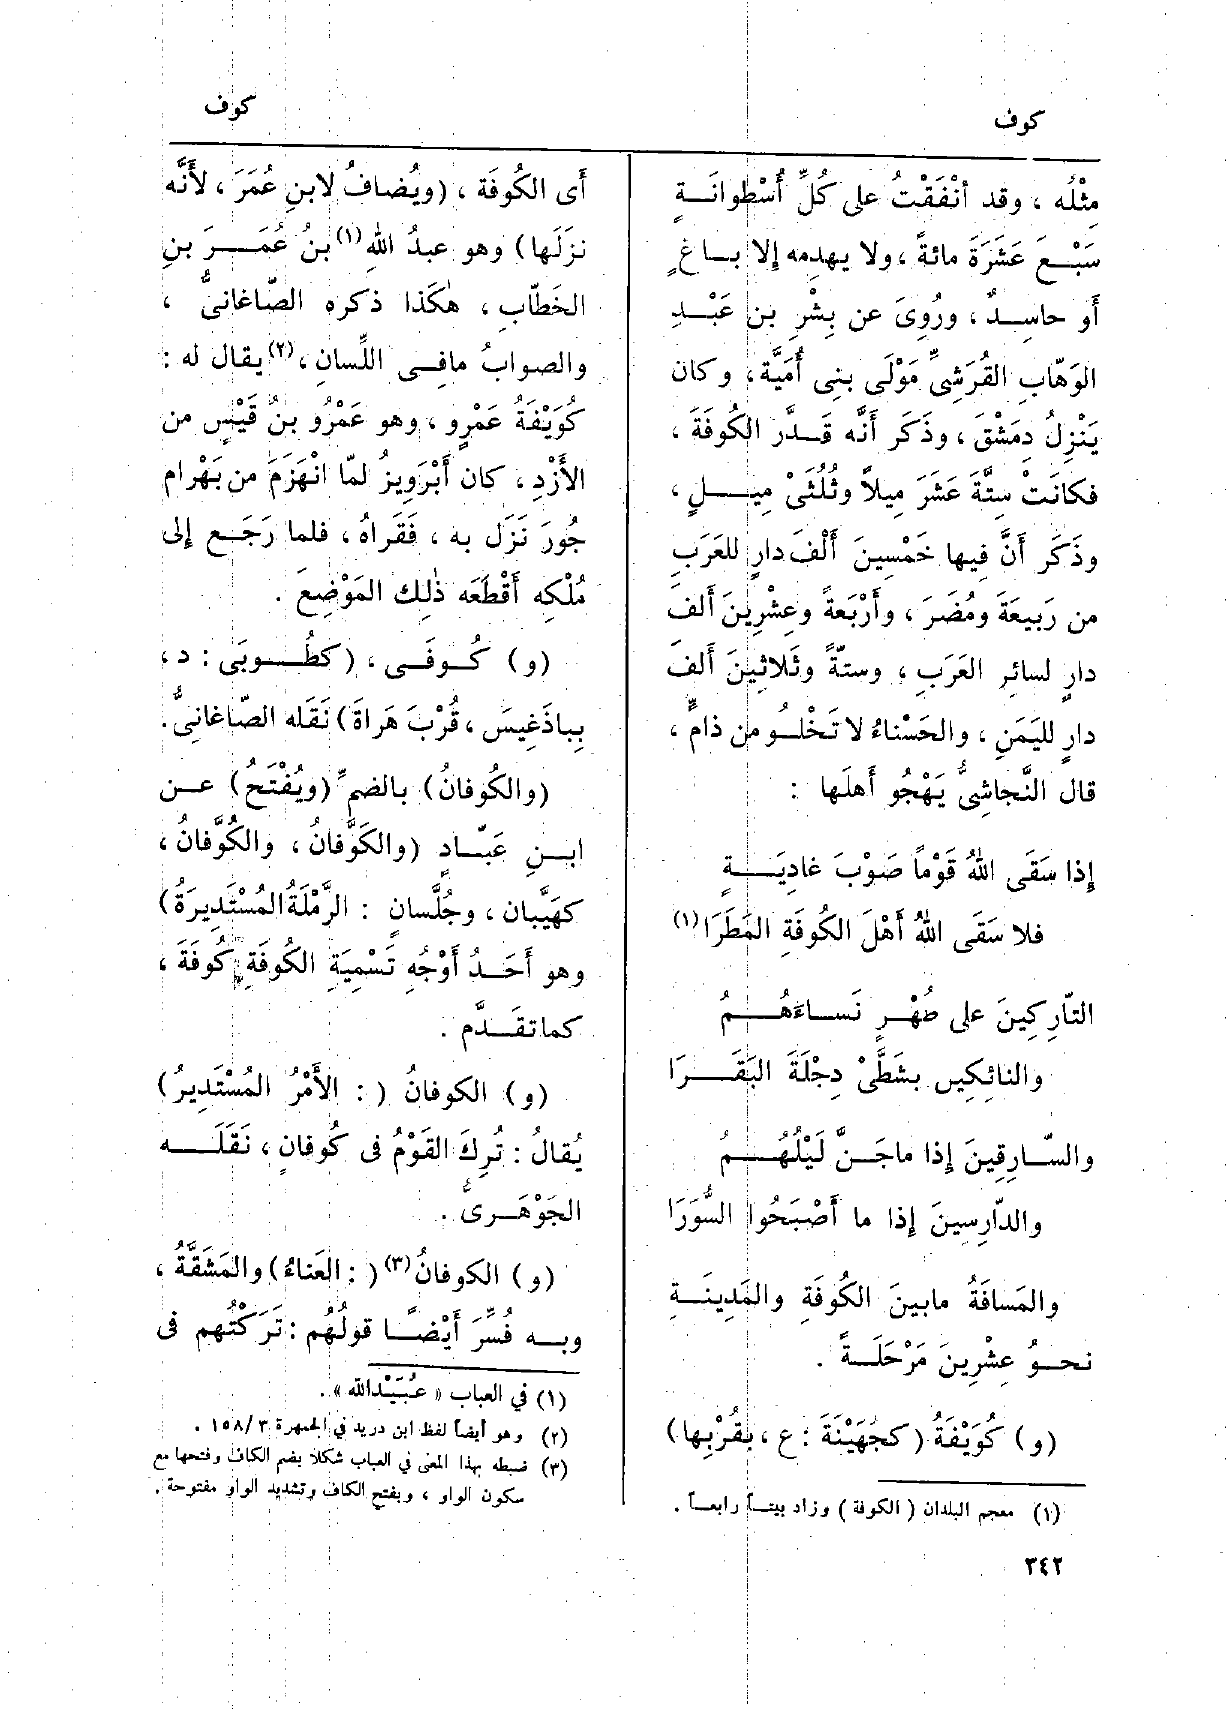 كوف
كوف
مِثْلُه ، وقد أنْفَقْتُ على كُلِّ أُسْطوانَـةٍ
سَبْـعَ عَشَرَةَ مائةً ، ولا يهدِمه إلا بـاغٍ
أو حاسِـدٌ ، ورُوِىَ عن بِشْرِ بن عَبْـدِ
الوَهّابِ القُرَشِىِّ مَوْلَى بنِى أُمَيَّة، وكان
يَنْزِلُ دِمَشْقَ ، وذَكَر أَنَّه قَـدَّر الكُوفَةَ ،
فكانَتْ ستَّةَ عَشَرَ مِيلاً وثُلُثَىْ مِيـــلٍ ،
وذَكَر أَنَّ فِيها خَمْسِينَ أَلْفَ دارٍ للعَرَبِ
من رَبِيعَةَ ومُضَرَ ، وأَرْبَعةً وعِشْرِينَ أَلفَ
دارٍ لسائِرِ العَرَبِ ، وستّةً وثَلاثِينَ أَلفَ
دارٍ لليَمَنِ ، والحَسْناءُ لا تَخْلُـو من ذامٍّ ،
قال النَّجاشِىُّ يَهْجُو أَهلَها :
إِذا سَقَى اللهُ قَوْماً صَوْبَ غادِيَـــةٍ
فلا سَقَى اللهُ أَهْلَ الكُوفَةِ المَطَرَا(١)
التّارِكِينَ على طُهْـرٍ نَسـاءَهُـــمُ
والنائِكِين بشَطَّىْ دِجْلَةَ البَقَـــرَا
والسّـارِقِينَ إِذا ماجَـنَّ لَيْلُهُـــمُ
والدّارِسِينَ إِذا ما أَصْبَحُوا السُّوَرَا
والمَسافَةُ مابينَ الكُوفَةِ والمَدِينَـةِ
نحـوُ عِشْرِينَ مَرْحَلَـةً .
(و) كُوَيْفَةُ (كجُهَيْنَةَ : ع ، بقُرْبِها)
(١) معجم البلدان ( الكوفة ) وزاد بيتـاً رابعـاً .
٣٤٢
أَى الكُوفَة ، (ويُضافُ لابنِ عُمَرَ ، لأَنَّه
نزَلَها) وهو عبدُ اللهِ(١) بنُ عُمَـــرَ بنِ
الخَطّابِ ، هٰكَذا ذكره الصّاغانىُّ ،
والصوابُ مافِـى اللِّسانِ ،(٢) يقال له :
كُوَيْفَةُ عَمْرٍو ، وهو عَمْرُو بنُ قَيْسٍ من
الأَزْدِ ، كان أَبْرَوِيزُ لمّا انْهَزَمَ من بَهْرام
جُورَ نَزَل به ، فَقَراهُ ، فلما رَجَـع إلى
مُلْكِه أَقْطَعَه ذٰلِك المَوْضِعَ .
(و) كُـوفَـى ، (كطُـــوبَى : د ،
بِباذَغِيسَ ، قُرْبَ هَراةَ) نَقَله الصّاغانِىُّ.
(والكُوفانُ) بالضمِّ (ويُفْتَحُ) عـن
ابـنِ عَبّـادٍ (والكَوَّفانُ ، والكُوَّفانُ ،
كهَيَّبان ، وجُلَّسانٍ : الرَّمْلَةُ المُسْتَدِيرَةُ)
وهو أَحَـدُ أَوْجُهِ تَسْمِيَةِ الكُوفَةِ كُوفَةَ ،
كما تقَـدَّم .
(و) الكوفانُ ( : الأَمْرُ المُسْتَدِيرُ)
يُقالُ : تُرِكَ القَوْمُ فى كُوفانٍ ، نَقَلَـــه
الجَوْهَـرىُّ .
(و) الكوفانُ(٣) ( : العَناءُ) والمَشَقَّةُ ،
وبـه فُسِّرَ أَيْضـــًا قولُهُم : تَرَكْتُهم فى
(١) في العباب « عُبَيْدالله » .
(٢) وهو أيضاً لفظ ابن دريد في الجمهرة ٣/ ١٥٨ .
(٣) ضبطه بهذا المعنى في العباب شكلا بضم الكاف وفتحها مع
سكون الواو ، وبفتح الكاف وتشديد الواو مفتوحة .